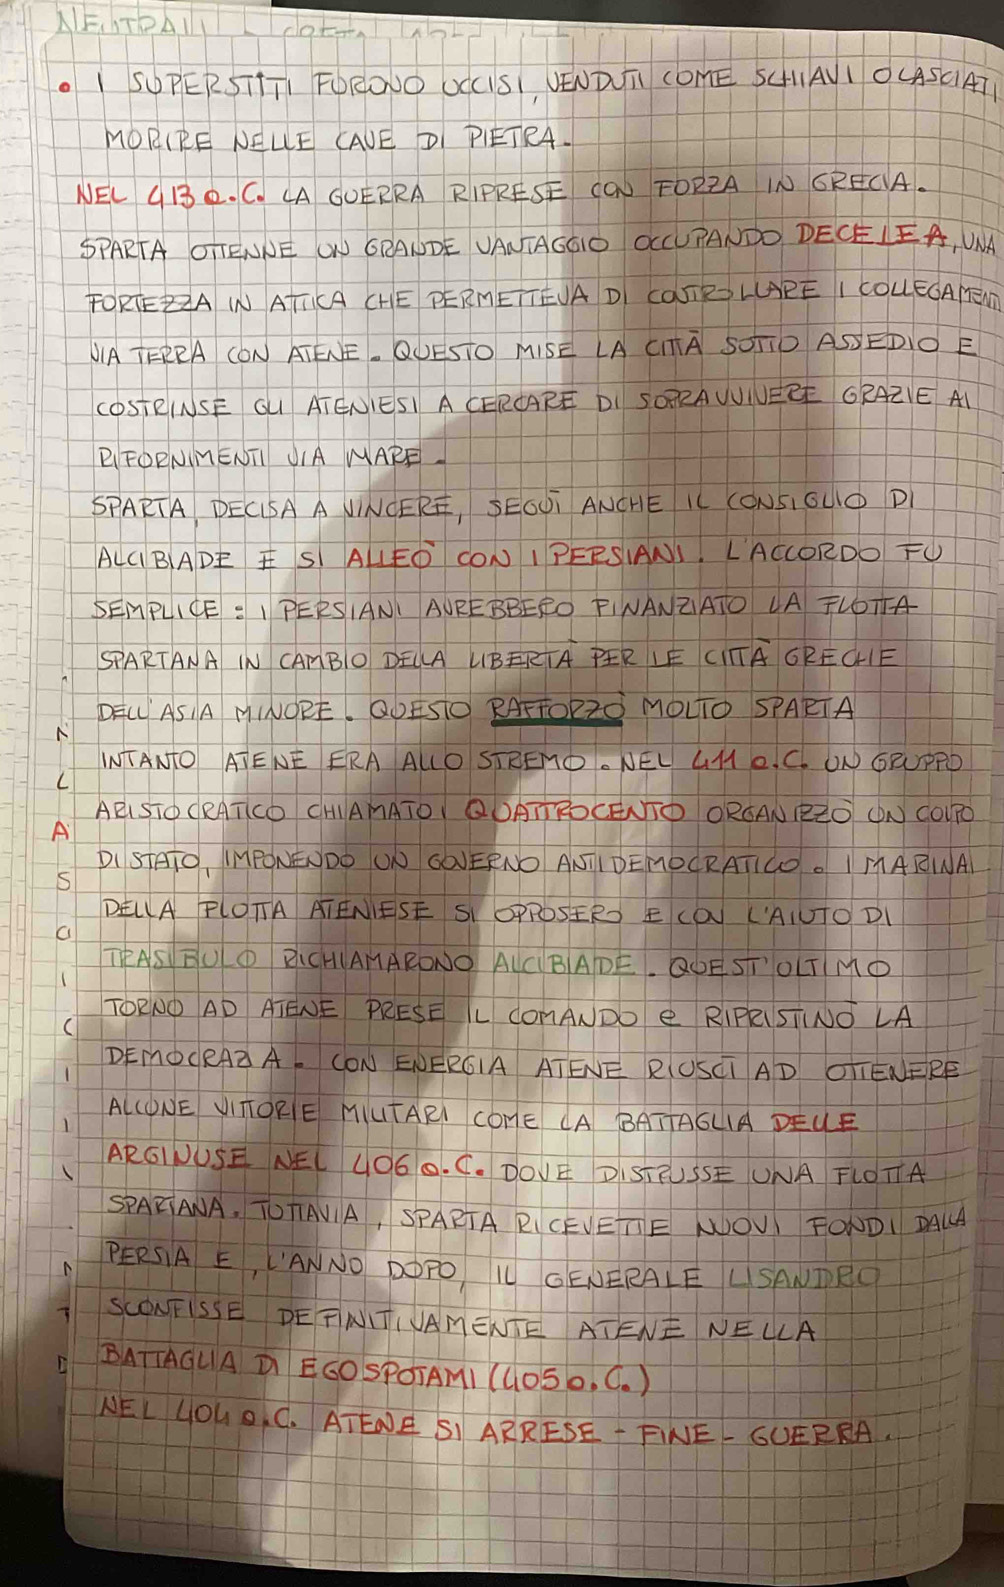 • I SUPERSTITI FURONO UCCISI, VENDUTI COME SCHIAVI O LASCIATI
MORIRE NELLE CAVE DI PIETRA.
NEL 413 a.C. LA GUERRA RIPRESE CON FORZA IN GRECIA.
SPARTA OTTENNE UN GRANDE VANTAGGIO OCCUPANDO DECELEA, UNA
FORTEZZA IN ATTICA CHE PERMETTEVA DI CONTROLLARE I COLLEGAMENTI
VIA TERRA CON ATENE. QUESTO MISE LA CITTÀ SOTTO ASSEDIO E
COSTRINSE GLI ATENIESI A CERCARE DI SOPRAVVIVERE GRAZIE AI
RIFORNIMENTI VIA MARE.
SPARTA, DECISA A VINCERE, SEGUÌ ANCHE IL CONSIGLIO DI
ALCIBIADE E SI ALLEÒ CON I PERSIANI. L'ACCORDO FU
SEMPLICE: I PERSIANI AVREBBERO FINANZIATO LA FLOTTA
SPARTANA IN CAMBIO DELLA LIBERTÀ PER LE CITTÀ GRECHE
DELL'ASIA MINORE. QUESTO RAFFORZÒ MOLTO SPARTA
INTANTO ATENE ERA ALLO STREMO. NEL 411 a.C. UN GRUPPO
ARISTOCRATICO CHIAMATO I QUATTROCENTO ORGANIZZÒ UN COLPO
DI STATO, IMPONENDO UN GOVERNO ANTIDEMOCRATICO. I MARINAI
DELLA FLOTTA ATENIESE SI OPPOSERO E CON L'AIUTO DI
TRASIBULO RICHIAMARONO ALCIBIADE. QUEST'ULTIMO
TORNO AD ATENE PRESE IL COMANDO e RIPRISTINÒ LA
DEMOCRAZIA. CON ENERGIA ATENE RIUSCÌ AD OTTENERE
ALCUNE VITTORIE MILITARI COME LA BATTAGLIA DELLE
ARGINUSE NEL 406 a.C. DOVE DISTRUSSE UNA FLOTTA
SPARTANA. TUTTAVIA, SPARTA RICEVETTE NUOVI FONDI DALLA
PERSIA E, L'ANNO DOPO, IL GENERALE LISANDRO
SCONFISSE DEFINITIVAMENTE ATENE NELLA
BATTAGLIA DI EGOSPOTAMI (405 a.C.)
NEL 404 a.C. ATENE SI ARRESE - FINE - GUERRA.